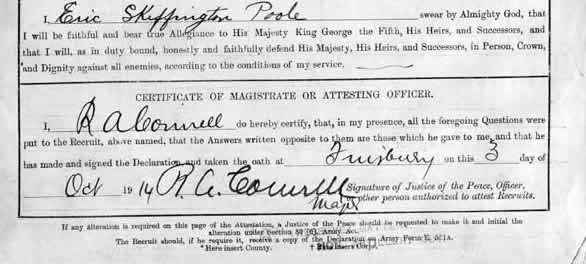 I, Eric Skeffington Poole swear by Almighty God, that
I will be faithful and bear true Allegiance to His Majesty King George the Fifth, His Heirs, and Successors, and
that I will, as in duty bound, honestly and faithfully defend His Majesty, His Heirs, and Successors, in Person, Crown,
and Dignity against all enemies, according to the conditions of my service.
CERTIFICATE OF MAGISTRATE OR ATTESTING OFFICER.
I, R A Connell do hereby certify, that, in my presence, all the foregoing Questions were
put to the Recruit, above named, that the Answers written opposite to them are those which he gave to me, and that he
has made and signed the Declaration and taken the oath at Finsbury on this 3 day of
Oct 1914 R. A. Connell Signature of Justice of the Peace, Officer,
Major or other person authorized to attest Recruits.
If any alteration is required on this page of the Attestation, a Justice of the Peace should be requested to make it and initial the
alteration under Section 80 (6), Army Act.
The Recruit should, if he require it, receive a copy of the Declaration on Army Form E. 501A.
* Here insert County. † Here insert Corps.